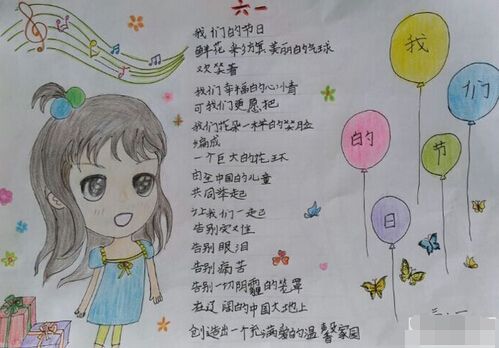 六一
我们的节日
鲜花 美丽的气球
欢笑着
我们幸福的心情
可我们更愿把
我们花朵一样的笑脸
编成
一个巨大的花环
由全中国的儿童
共同举起
让我们一起
告别
告别 眼泪
告别 痛苦
告别一切阴霾的笼罩
在辽阔的中国大地上
创造出一个充满的温馨家园
我
们
的
节
日
三.一